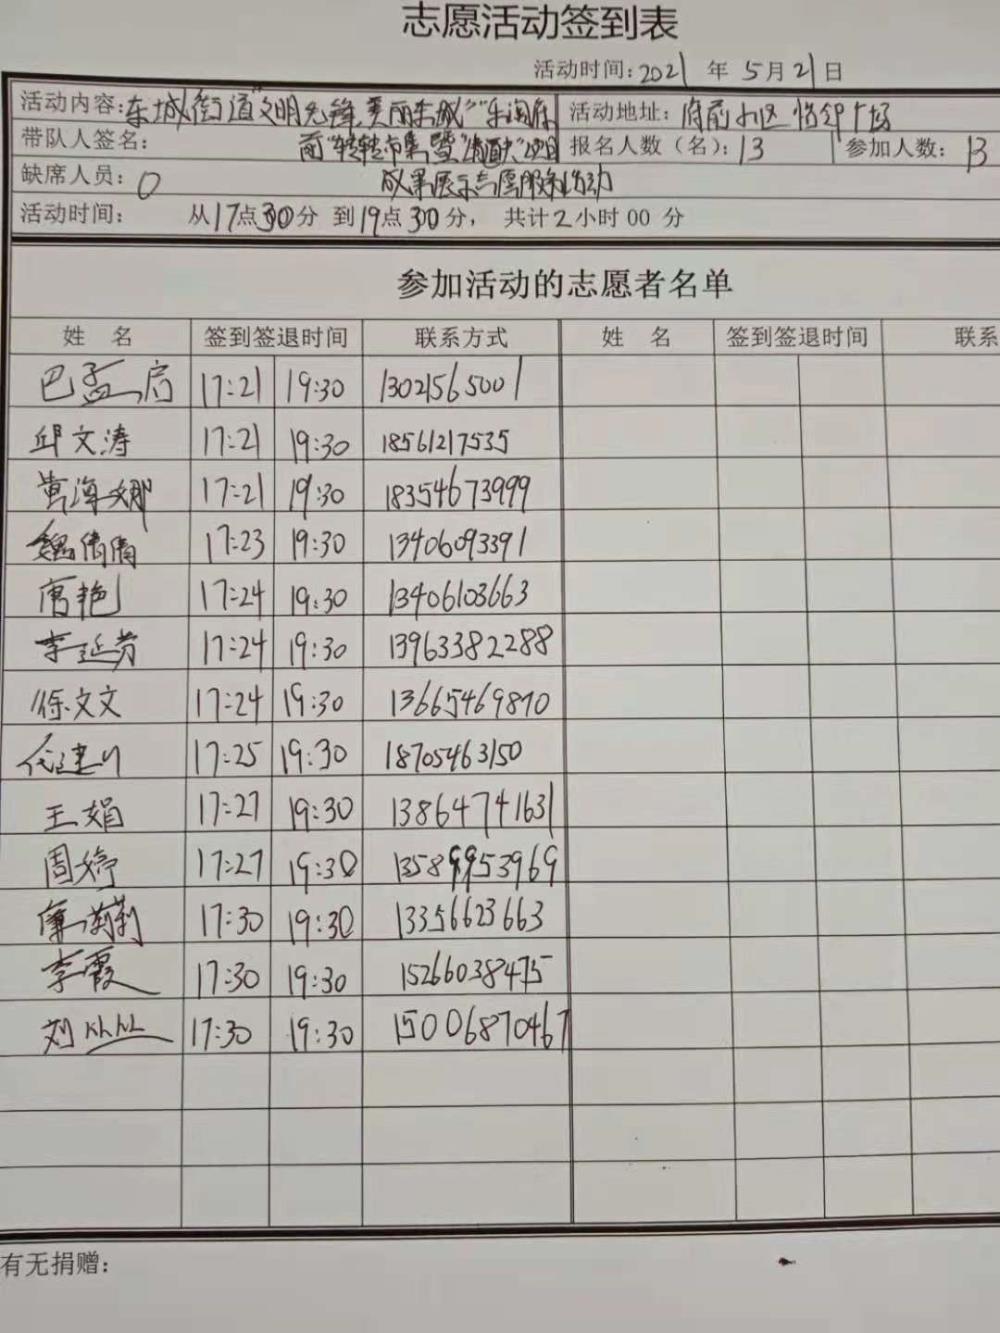 志愿活动签到表
活动时间:2021 年 5月21日
活动内容:东城街道"文明先锋,美丽东城""乐淘府 活动地址:府前小区 怡邻广场
带队人签名: 前"转转市集暨 项目 报名人数(名):13 参加人数:13
缺席人员:0 成果展示志愿服务活动
活动时间: 从17点30分 到19点30分, 共计2小时00分
参加活动的志愿者名单
姓 名 签到签退时间 联系方式 姓 名 签到签退时间 联系
巴孟启 17:21 19:30 13021565001
邱文涛 17:21 19:30 18561217535
黄海娜 17:21 19:30 18354673999
魏倩倩 17:23 19:30 13406093391
唐艳 17:24 19:30 13406103663
李延芳 17:24 19:30 13963382288
徐文文 17:24 19:30 13665469870
代建 17:25 19:30 18705463150
王娟 17:27 19:30 13864741631
周婷 17:27 19:30 13589953969
莉莉 17:30 19:30 13356623663
李霞 17:30 19:30 15266038475
刘 17:30 19:30 15006870467
有无捐赠: